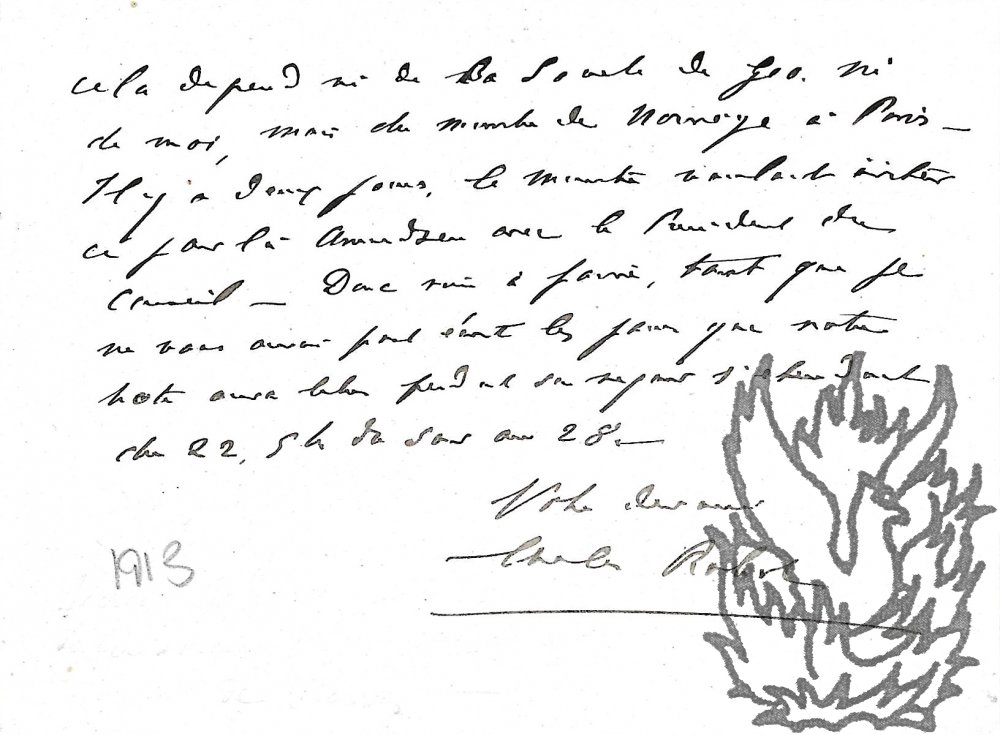 cela depend ni de la Société de Géo. ni
de moi, mais du ministre de Norvège à Paris –
Il y a deux jours, le ministre voulait inviter
ce jour là Amundsen avec le President du
Conseil – Donc rien à faire, tant que je
ne vous aurai pas écrit les jours que notre
hote aura libre pendant son sejour s'etendant
du 22, 5h du soir au 28 –
Votre devoué
Charles
1913